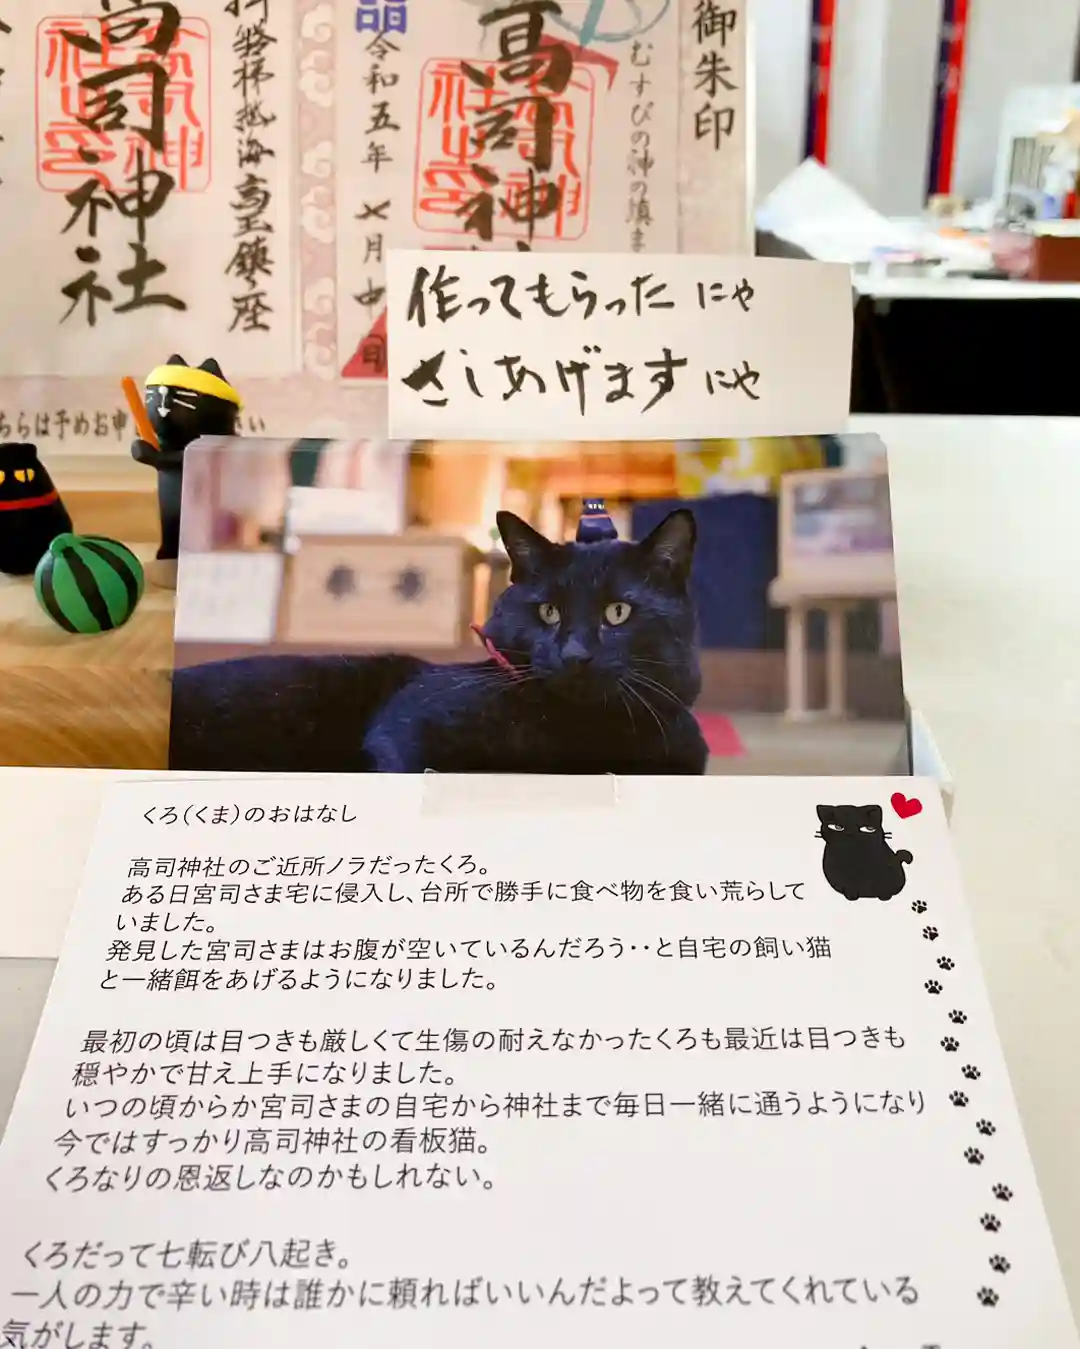 高司神社
磐梯熱海高玉鎮座
令和五年
七月中
高司神社
むすびの神の鎮ま
御朱印
作ってもらった にゃ
さしあげます にゃ
ちらは予めお申
さい
くろ(くま)のおはなし
高司神社のご近所ノラだったくろ。
ある日宮司さま宅に侵入し、台所で勝手に食べ物を食い荒らして
いました。
発見した宮司さまはお腹が空いているんだろう‥と自宅の飼い猫
と一緒餌をあげるようになりました。
最初の頃は目つきも厳しくて生傷の耐えなかったくろも最近は目つきも
穏やかで甘え上手になりました。
いつの頃からか宮司さまの自宅から神社まで毎日一緒に通うようになり
今ではすっかり高司神社の看板猫。
くろなりの恩返しなのかもしれない。
くろだって七転び八起き。
一人の力で辛い時は誰かに頼ればいいんだよって教えてくれている
気がします。